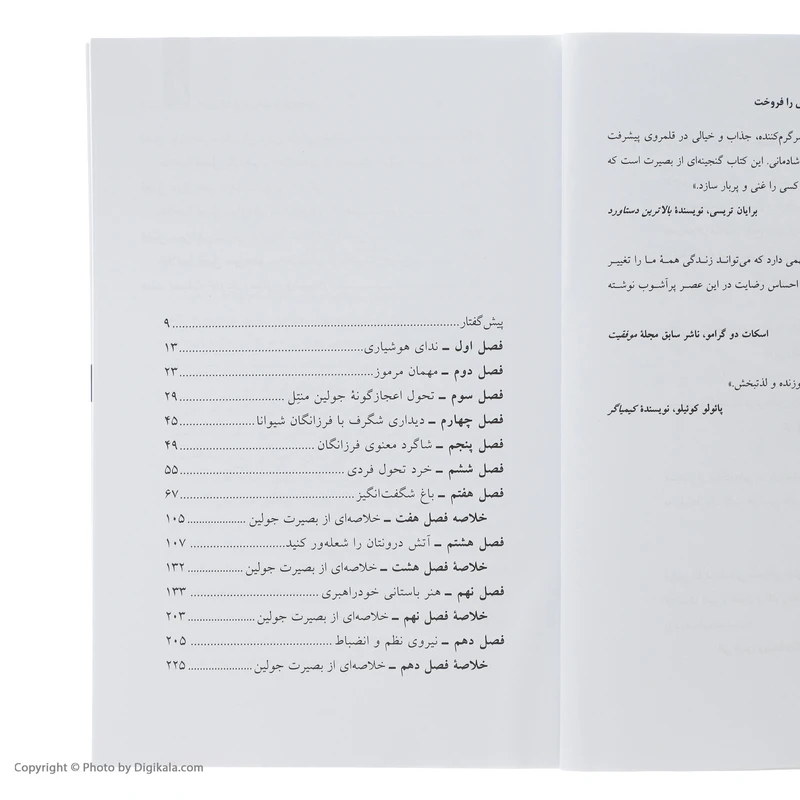 را فروخت
سرگرم‌کننده، جذاب و خیالی در قلمروی پیشرفت
شادمانی. این کتاب گنجینه‌ای از بصیرت است که
کسی را غنی و پربار سازد.»
برایان تریسی، نویسندهٔ بالاترین دستاورد
دارد که می‌تواند زندگی همهٔ ما را تغییر
احساس رضایت در این عصر پرآشوب نوشته
اسکات دو گرامو، ناشر سابق مجلهٔ موفقیت
و لذتبخش.»
پائولو کوئیلو، نویسندهٔ کیمیاگر
پیش‌گفتار ۹
فصل اول ـ ندای هوشیاری ۱۳
فصل دوم ـ مهمان مرموز ۲۳
فصل سوم ـ تحول اعجازگونهٔ جولین منتِل ۲۹
فصل چهارم ـ دیداری شگرف با فرزانگان شیوانا ۴۵
فصل پنجم ـ شاگرد معنوی فرزانگان ۴۹
فصل ششم ـ خرد تحول فردی ۵۵
فصل هفتم ـ باغ شگفت‌انگیز ۶۷
خلاصه فصل هفت ـ خلاصه‌ای از بصیرت جولین ۱۰۵
فصل هشتم ـ آتش درونتان را شعله‌ور کنید ۱۰۷
خلاصهٔ فصل هشت ـ خلاصه‌ای از بصیرت جولین ۱۳۲
فصل نهم ـ هنر باستانی خودراهبری ۱۳۳
خلاصهٔ فصل نهم ـ خلاصه‌ای از بصیرت جولین ۲۰۳
فصل دهم ـ نیروی نظم و انضباط ۲۰۵
خلاصهٔ فصل دهم ـ خلاصه‌ای از بصیرت جولین ۲۲۵
Copyright © Photo by Digikala.com